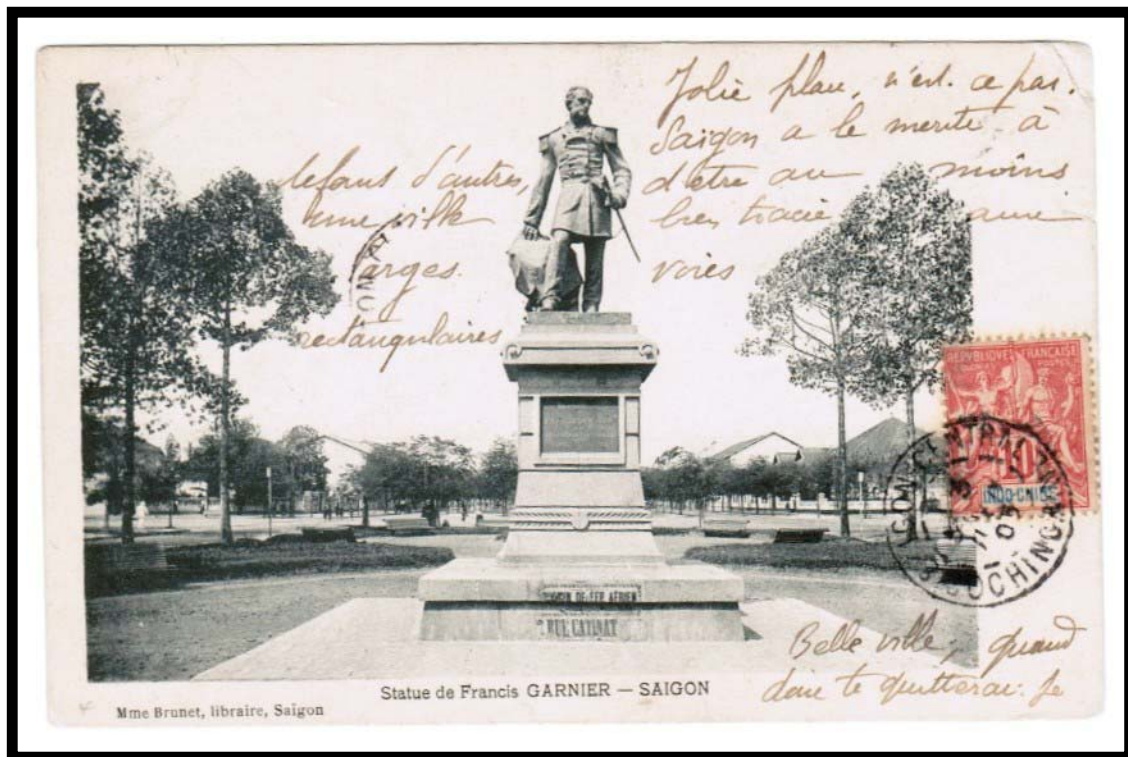 Jolie place, n'est-ce pas.
Saïgon a le merite à
defaut d'autres, d'etre au moins
une ville bien tracée aux
larges voies
rectangulaires
REPUBLIQUE FRANÇAISE
10
INDO-CHINE
SAIGON CENTRAL
COCHINCHINE
CHEMIN DE FER AÉRIEN
RUE CATINAT
Belle ville, quand
donc te quitterai-je
Statue de Francis GARNIER — SAIGON
Mme Brunet, libraire, Saïgon